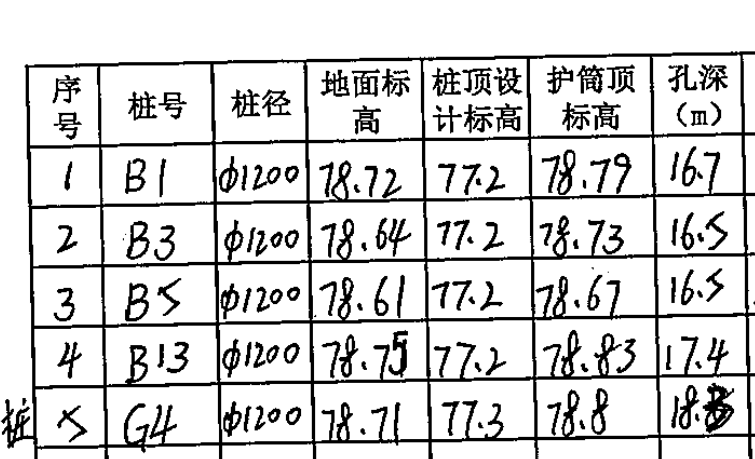 序号 桩号 桩径 地面标高 桩顶设计标高 护筒顶标高 孔深（m）
1 B1 φ1200 78.72 77.2 78.79 16.7
2 B3 φ1200 78.64 77.2 78.73 16.5
3 B5 φ1200 78.61 77.2 78.67 16.5
4 B13 φ1200 78.75 77.2 78.83 17.4
桩 5 G4 φ1200 78.71 77.3 78.8